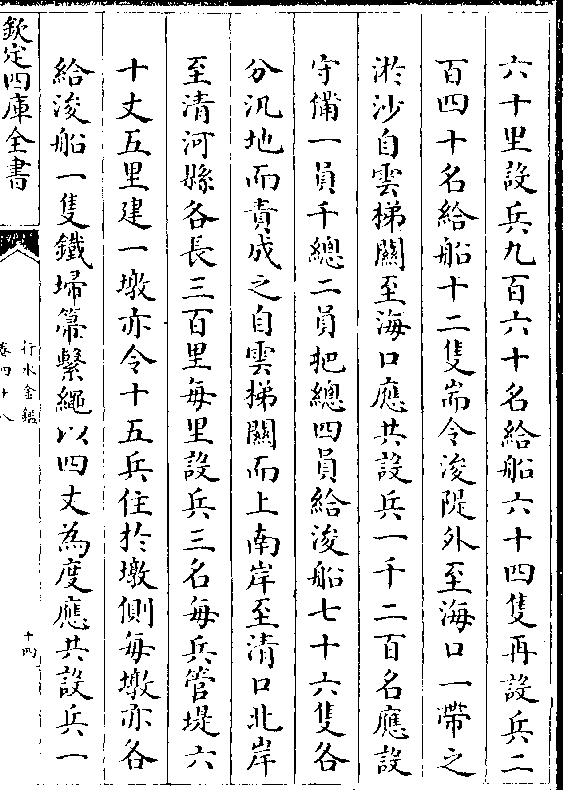 六十里設兵九百六十名給船六十四隻再設兵二
百四十名給船十二隻耑令浚隄外至海口一帶之
淤沙自雲梯關至海口應共設兵一千二百名應設
守備一員千總二員把總四員給浚船七十六隻各
分汛地而責成之自雲梯關而上南岸至清口北岸
至清河縣各長三百里每里設兵三名每兵管堤六
十丈五里建一墩亦令十五兵住於墩側每墩亦各
給浚船一隻鐵埽箒繫繩以四丈為度應共設兵一
欽定四庫全書
行水金鑑
卷四十八
十四